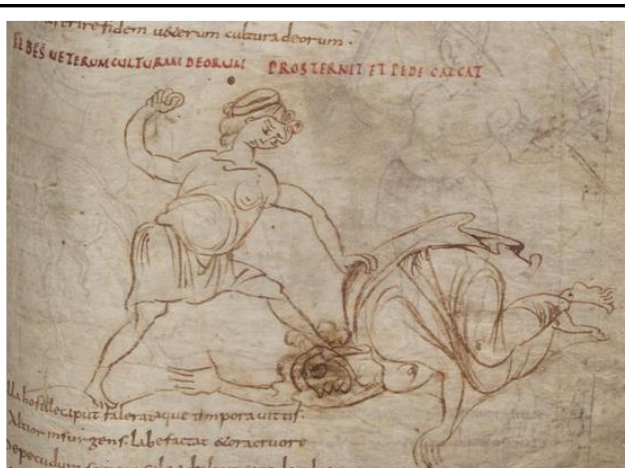 ferire fidem ueterum cultura deorum ·
FIDES UETERUM CULTURAM DEORUM PROSTERNIT ET PEDE CALCAT
lla hostile caput falerataque timpora uittis·
Altior insurgens· labefactat & ora cruore
Depecudum